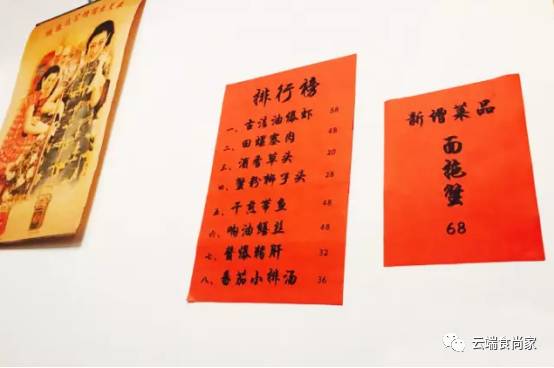 排行榜
一、古法油爆虾 58
二、田螺塞肉 48
三、酒香草头 20
四、蟹粉狮子头 28
五、干煎带鱼 48
六、响油鳝丝 48
七、酱爆猪肝 32
八、番茄小排汤 36
新增菜品
面拖蟹
68
云端食尚家